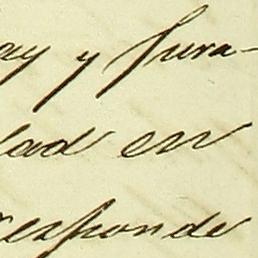 ay y Jura-
dad en
responde